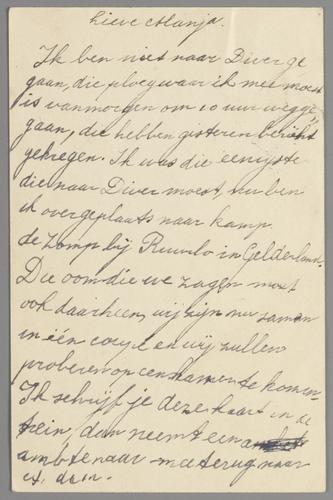 Lieve Manja.
Ik ben niet naar Diver ge
gaan, die ploeg waar ik mee moest
is vanmorgen om 10 uur wegge
gaan, die hebben gisteren bericht
gekregen. Ik was die eenigste
die naar Diver moest, nu ben
ik overgeplaatst naar kamp
de Zomp bij Ruurlo in Gelderland.
Die oom die we zagen moet
ook daarheen, wij zijn nu samen
in één coupé en wij zullen
proberen op een kamer te komen
Ik schrijf je deze kaart in de
trein, dan neemt een
ambtenaar mee terug naar
A'dam.